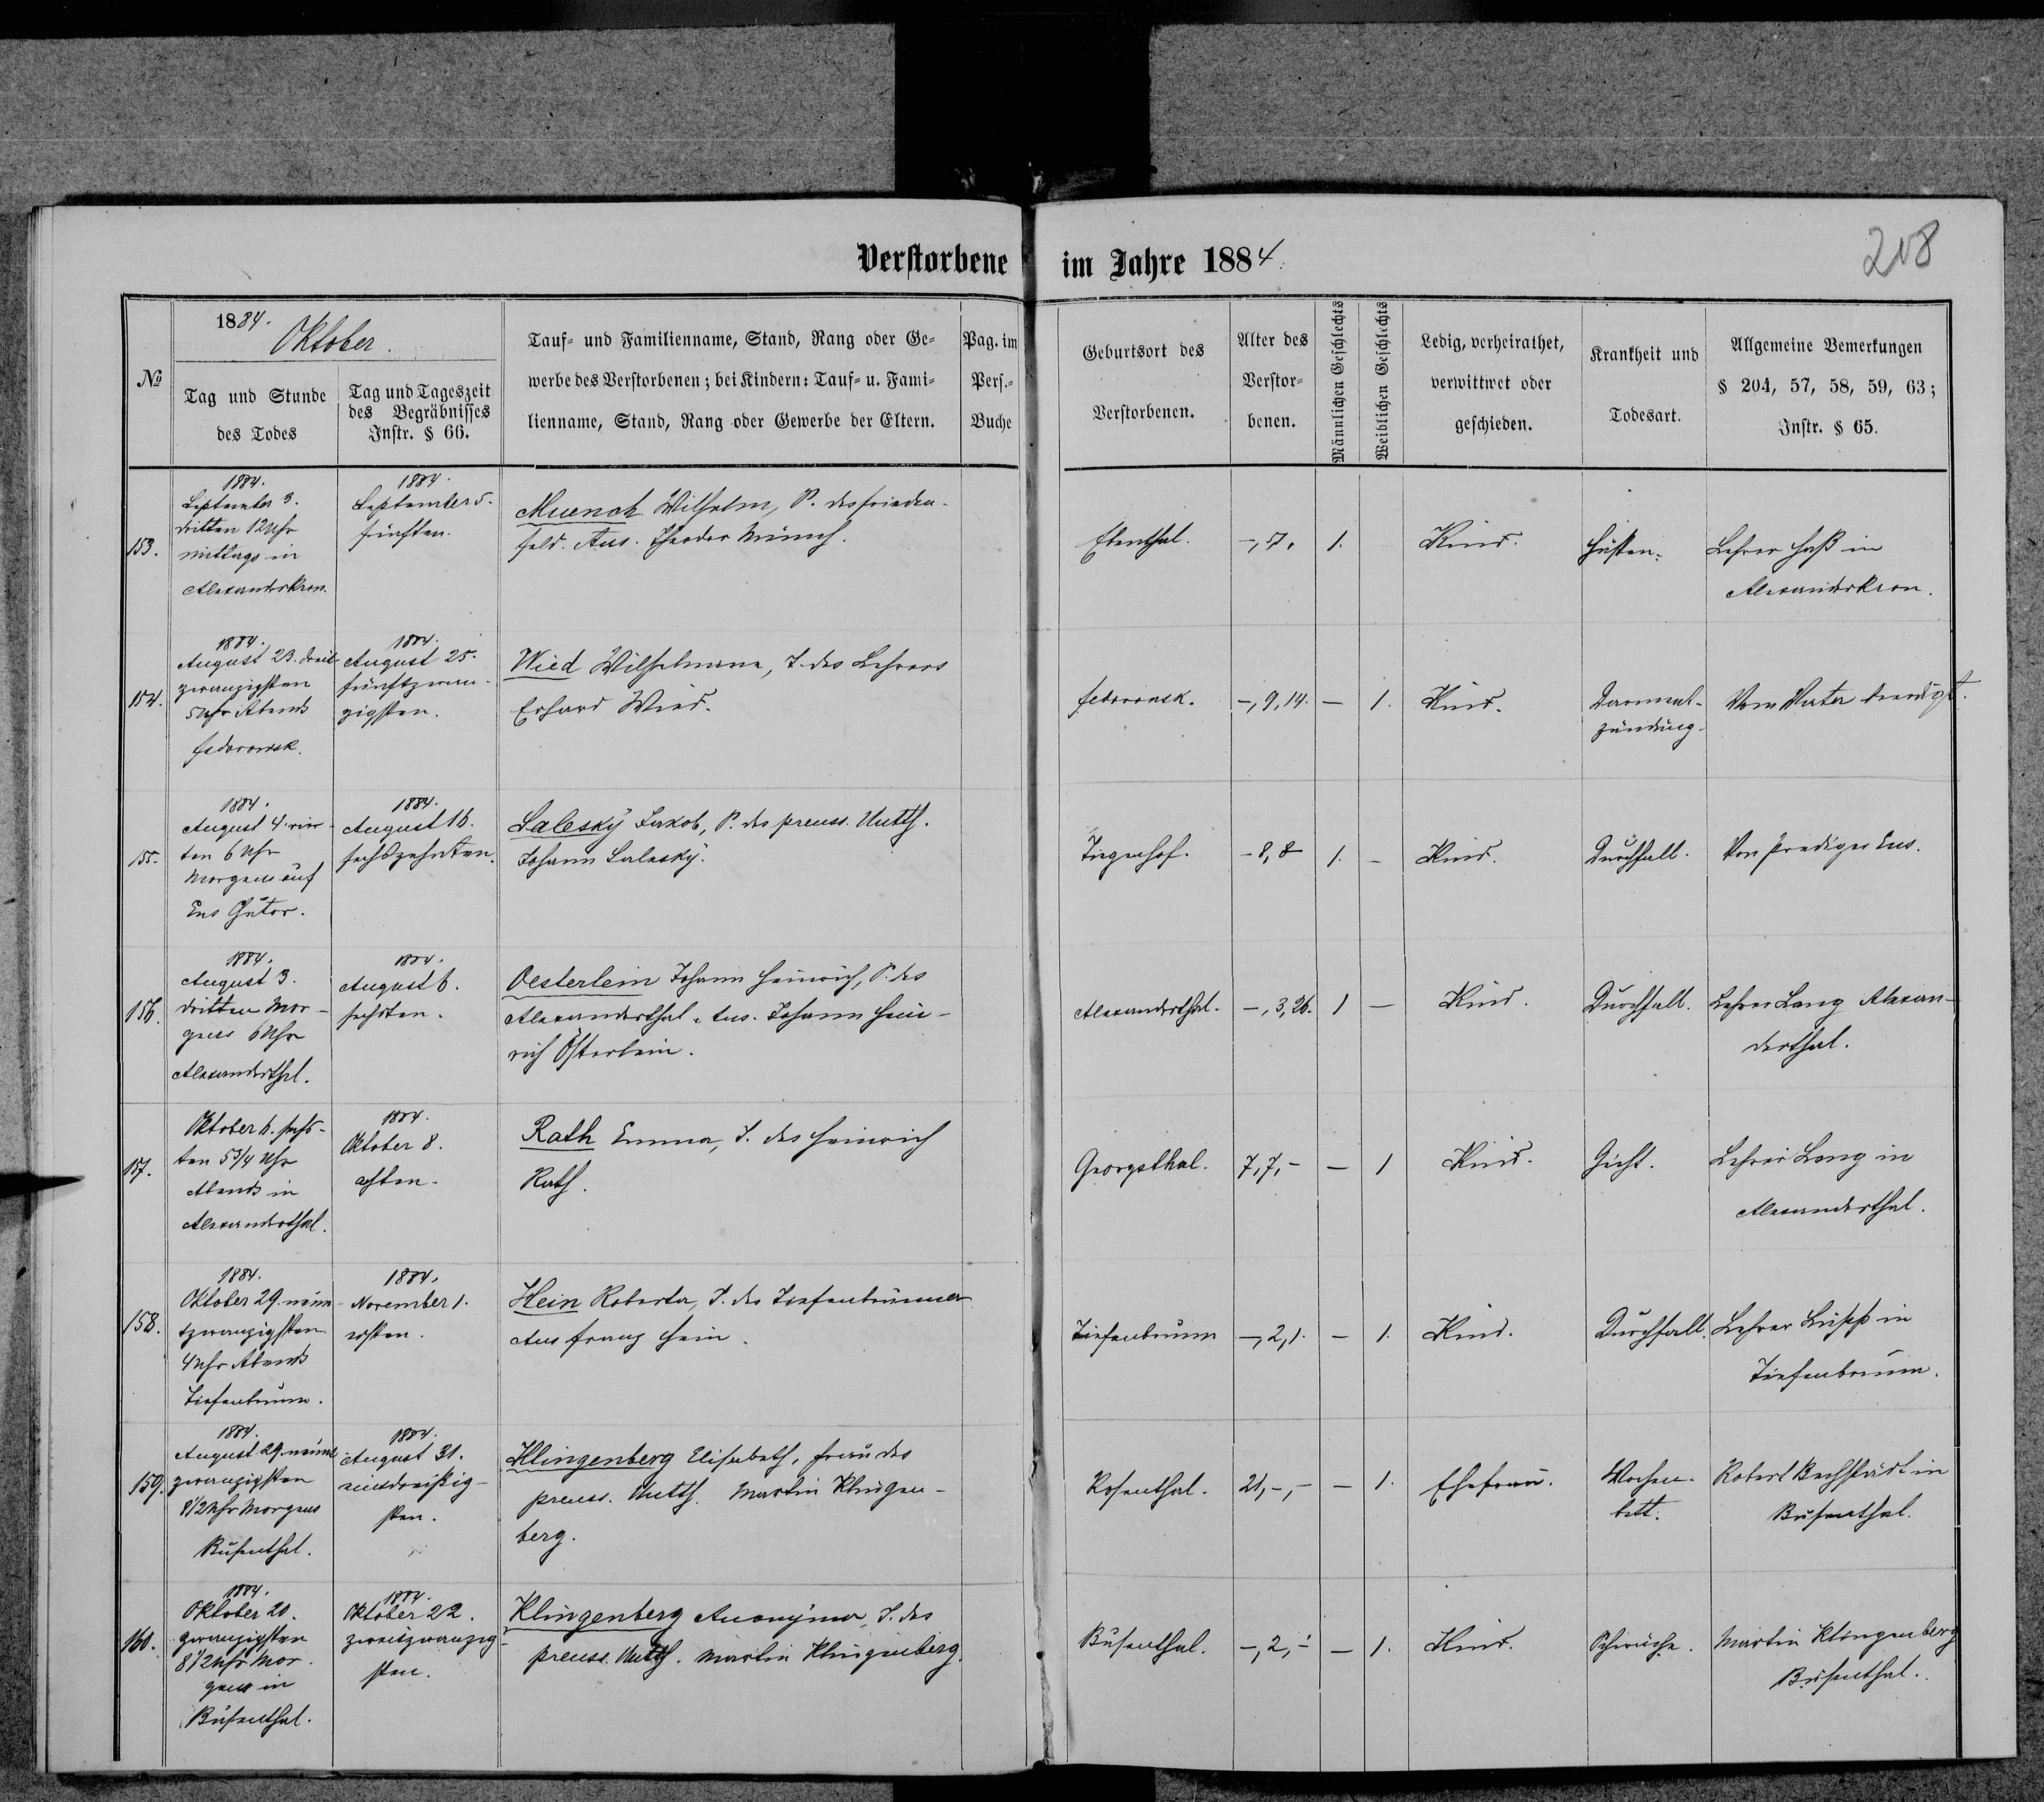 Verstorbene im Jahre 1884.
208
№
1884.
Oktober.
Tag und Stunde
des Todes
Tag und Tageszeit
des Begräbnisses
Instr. § 66.
Tauf- und Familienname, Stand, Rang oder Ge-
werbe des Verstorbenen; bei Kindern: Tauf- u. Fami-
lienname, Stand, Rang oder Gewerbe der Eltern.
Pag. im
Pers.-
Buche
Geburtsort des
Verstorbenen.
Alter des
Verstor-
benen.
Männlichen Geschlechts
Weiblichen Geschlechts
Ledig, verheirathet,
verwittwet oder
geschieden.
Krankheit und
Todesart.
Allgemeine Bemerkungen
§ 204, 57, 58, 59, 63;
Instr. § 65.
153.
1884.
September 3.
dritten 12 Uhr
mittags in
Alexanderkron.
1884.
September 5.
fünften.
Muench Wilhelm, S. des Frieden-
feld. Ans. Theodor Münch.
Ebenthal.
-, 5.
1.
Kind.
Husten.
Lehrer Haß in
Alexanderkron.
154.
1884.
August 23. drei-
zwanzigsten
5 Uhr Abends
Fedorowsk.
1884.
August 25.
fünftzwan-
zigsten.
Wied Wilhelmine, T. des Lehrers
Erhard Wied.
Fedorowsk.
-, 9, 14.
-
1.
Kind.
Darment-
zündung.
Vom Vater beerdigt.
155.
1884.
August 4. vier-
ten 6 Uhr
Morgens auf
Ens Chutor.
1884.
August 16.
sechszehnten.
Salesky Jakob, S. des preuss. Untth.
Johann Salesky.
Tiegenhof.
- 8, 8
1.
-
Kind.
Durchfall.
Von Prediger Ens.
156.
1884.
August 3.
dritten Mor-
gens 6 Uhr
Alexanderthal.
1884.
August 6.
sechsten.
Oesterlein Johann Heinrich, S. des
Alexanderthal. Ans. Johann Hein-
rich Österlein.
Alexanderthal.
-, 3, 26.
1
-
Kind.
Durchfall.
Lehrer Lang Alexan-
derthal.
157.
Oktober 6. sechs-
ten 5 3/4 Uhr
Abends in
Alexanderthal.
1884.
Oktober 8.
achten.
Rath Emma, T. des Heinrich
Rath.
Georgsthal.
7, 7, -
-
1
Kind.
Gicht.
Lehrer Lang in
Alexanderthal.
158.
1884.
Oktober 29. neun-
tzwanzigsten
4 Uhr Abends
Tiefenbrunn.
1884.
November 1.
ersten.
Hein Roberta, T. des Tiefenbrunner
Ans Franz Hein.
Tiefenbrunn
-, 2, 1.
-
1.
Kind.
Durchfall.
Lehrer in
Tiefenbrunn.
159.
1884.
August 29. neunt
zwanzigsten
8 1/2 Uhr Morgens
Busenthal.
1884.
August 31.
einsdreißig-
sten.
Klingenberg Elisabeth, Frau des
preuss. Untth. Martin Klingen-
berg.
Rosenthal.
21, -, -
-
1.
Ehefrau.
Wochen-
bett.
Robert Bechstädt in
Busenthal.
160.
1884.
Oktober 20.
zwanzigsten
8 1/2 Uhr Mor-
gens in
Busenthal.
1884.
Oktober 22.
zweitzwanzig-
sten.
Klingenberg Anonyma, T. des
preuss. Untth. Martin Klingenberg.
Busenthal.
-, 2, -
-
1.
Kind.
Schwäche.
Martin Klingenberg
Busenthal.